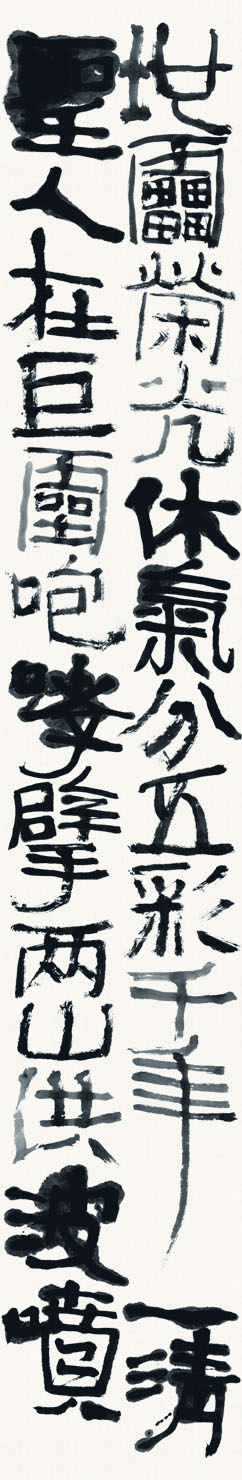 地靁榮光休氣分五彩千年一清
聖人在巨靈咆哮擘两山洪波噴